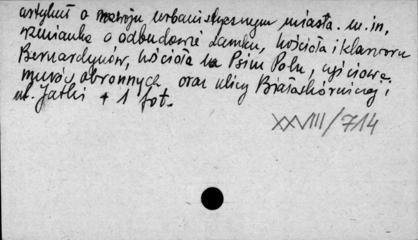 artykuł o rozwoju urbanistycznym miasta. m. in.
wzmianka o odbudowie zamku, kościoła i klasztoru
Bernardynów, kościoła na Psim Polu, wyjściowe
murów obronnych oraz ulicy Białoskórniczej i
ul. Jatki + 1 fot.
XXVIII/714